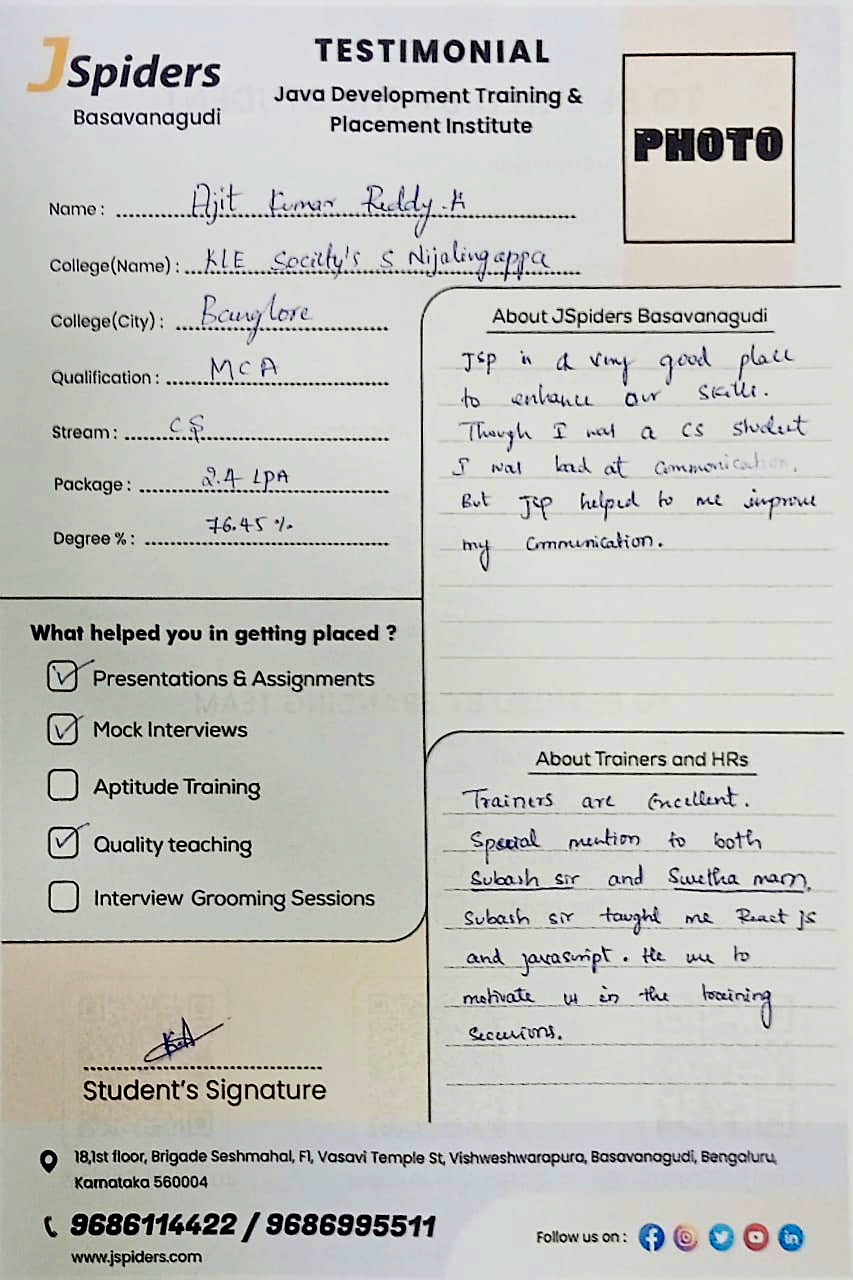 JSpiders
Basavanagudi
TESTIMONIAL
Java Development Training &
Placement Institute
PHOTO
Name : Ajit Kumar Reddy.A
College(Name) : KLE Society's S Nijalingappa
College(City) : Banglore
Qualification : MCA
Stream : CS
Package : 2.4 LPA
Degree % : 76.45 %
What helped you in getting placed ?
Presentations & Assignments
Mock Interviews
Aptitude Training
Quality teaching
Interview Grooming Sessions
Student's Signature
About JSpiders Basavanagudi
JSP is a very good place
to enhance our skills.
Though I was a CS student
I was bad at Commonication.
But JSP helped to me improve
my Communication.
About Trainers and HRs
Trainers are Excellent.
Special mention to both
Subash sir and Swetha mam.
Subash sir taught me React js
and javascript. He use to
motivate us in the training
18,1st floor, Brigade Seshmahal, F1, Vasavi Temple St, Vishweshwarapura, Basavanagudi, Bengaluru,
Karnataka 560004
9686114422 / 9686995511
www.jspiders.com
Follow us on :